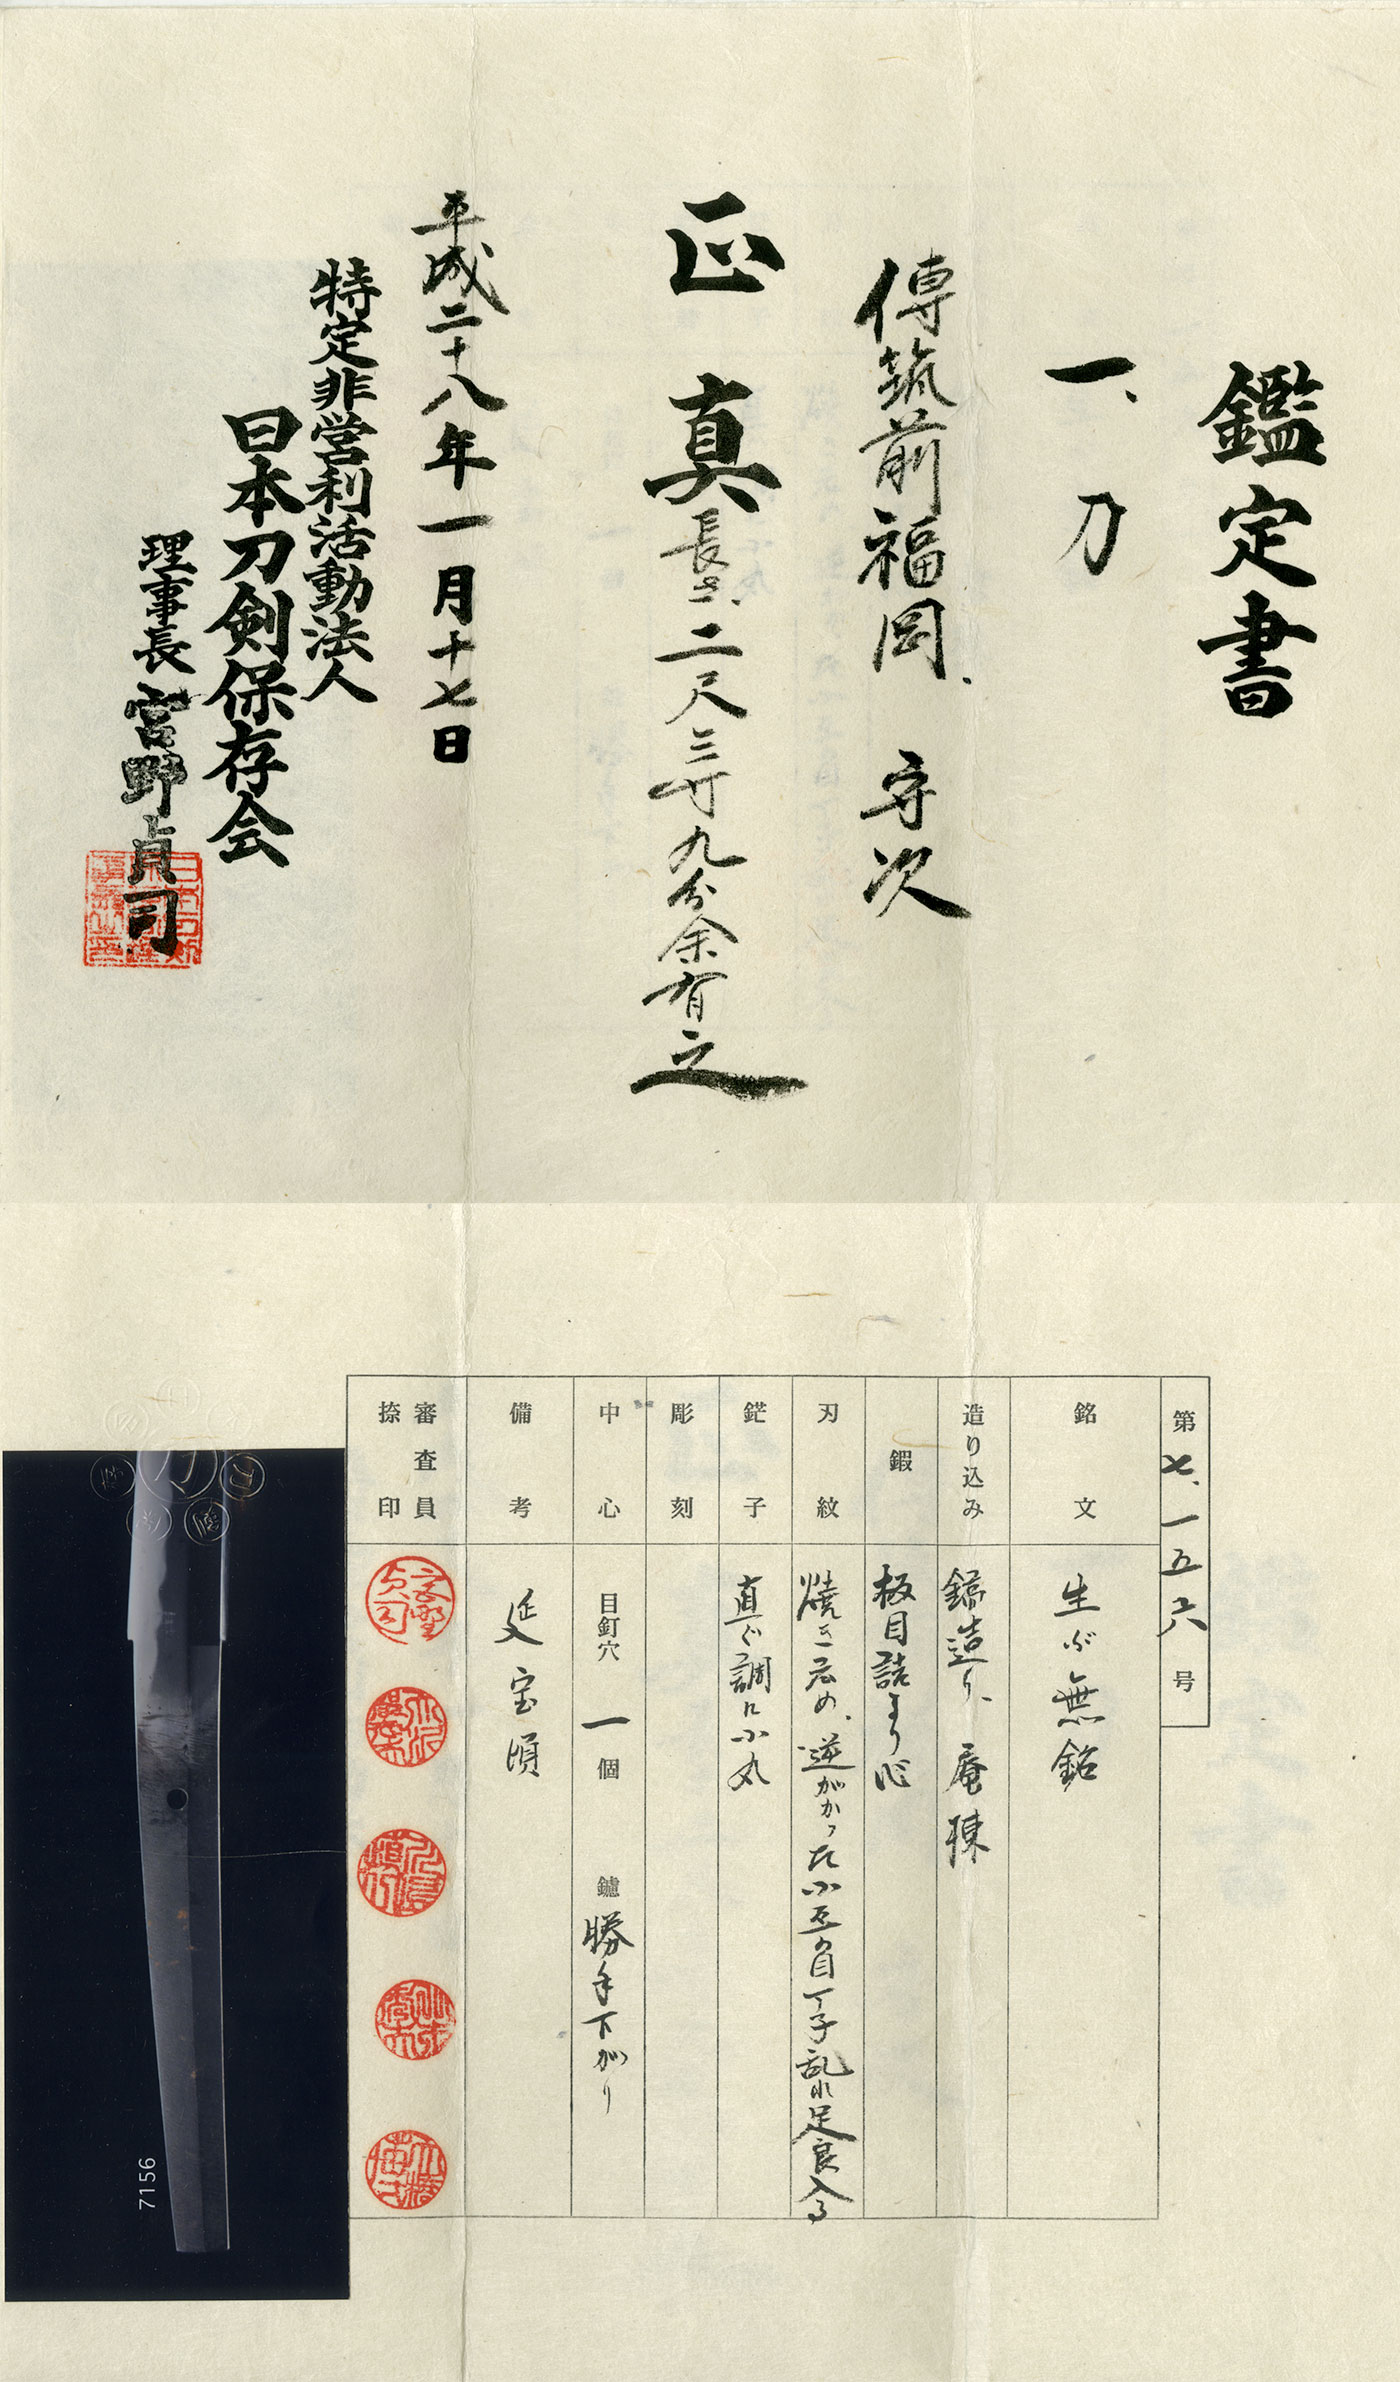 鑑定書
一、刀
傳筑前福岡、守次
正真
長さ、二尺三寸九分余有之
平成二十八年一月十七日
特定非営利活動法人
日本刀剣保存会
理事長 宮野貞司
第七、一五六号
銘文 生ぶ無銘
造り込み 鎬造り、庵棟
鍜 板目詰まり心
刃紋 焼き広め、逆がかった小互の目丁子乱れ足良入る
鋩子 直ぐ調に小丸
彫刻
中心 目釘穴 一個 鑢 勝手下がり
備考 延宝頃
審査員
捺印
7156